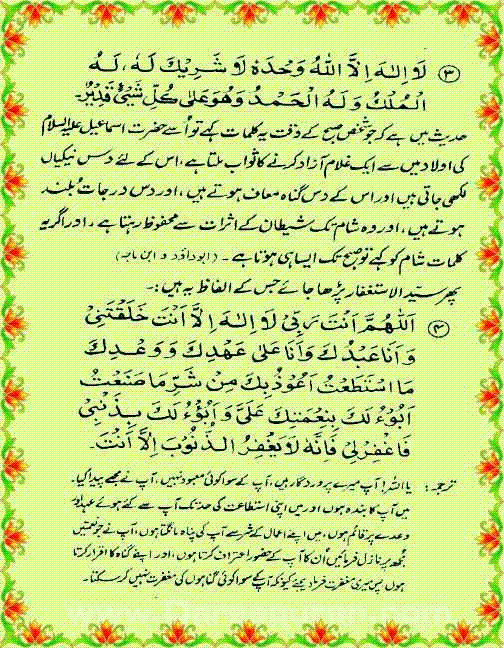 ③ لَا اِلٰهَ اِلَّا اللّٰهُ وَحْدَهٗ لَا شَرِيْكَ لَهٗ، لَهُ
الْمُلْكُ وَلَهُ الْحَمْدُ وَهُوَ عَلٰى كُلِّ شَيْئٍ قَدِيْرٌ۔
حدیث میں ہے کہ جو شخص صبح کے وقت یہ کلمات کہے تو اُسے حضرت اسماعیل علیہ السلام
کی اولاد میں سے ایک غلام آزاد کرنے کا ثواب ملتا ہے، اس کے لئے دس نیکیاں
لکھی جاتی ہیں اور اس کے دس گناہ معاف ہوتے ہیں، اور دس درجات بُلند
ہوتے ہیں، اور وہ شام تک شیطان کے اثرات سے محفوظ رہتا ہے، اور اگر یہ
کلمات شام کو کہے تو صبح تک ایسا ہی ہوتا ہے۔ (ابوداؤد و ابن ماجہ)
پھر سیّد الاستغفار پڑھا جائے جس کے الفاظ یہ ہیں:۔
④ اَللّٰهُمَّ اَنْتَ رَبِّيْ لَا اِلٰهَ اِلَّا اَنْتَ خَلَقْتَنِيْ
وَاَنَا عَبْدُكَ وَاَنَا عَلٰى عَهْدِكَ وَوَعْدِكَ
مَا اسْتَطَعْتُ اَعُوْذُ بِكَ مِنْ شَرِّ مَا صَنَعْتُ
اَبُوْءُ لَكَ بِنِعْمَتِكَ عَلَيَّ وَاَبُوْءُ لَكَ بِذَنْبِيْ
فَاغْفِرْلِيْ فَاِنَّهٗ لَا يَغْفِرُ الذُّنُوْبَ اِلَّا اَنْتَ۔
ترجمہ: یا اللہ! آپ میرے پروردگار ہیں، آپ کے سوا کوئی معبود نہیں، آپ نے مجھے پیدا کیا۔
میں آپ کا بندہ ہوں اور میں اپنی استطاعت کی حد تک آپ سے کئے ہوئے عہد اور
وعدے پر قائم ہوں، میں اپنے اعمال کے شر سے آپ کی پناہ مانگتا ہوں، آپ نے جو نعمتیں
مجھ پر نازل فرمائیں اُن کا آپ کے حضور اعتراف کرتا ہوں، اور اپنے گناہ کا اقرار کرتا
ہوں پس میری مغفرت فرما دیجئے کیونکہ آپ کے سوا کوئی گناہوں کی مغفرت نہیں کر سکتا۔